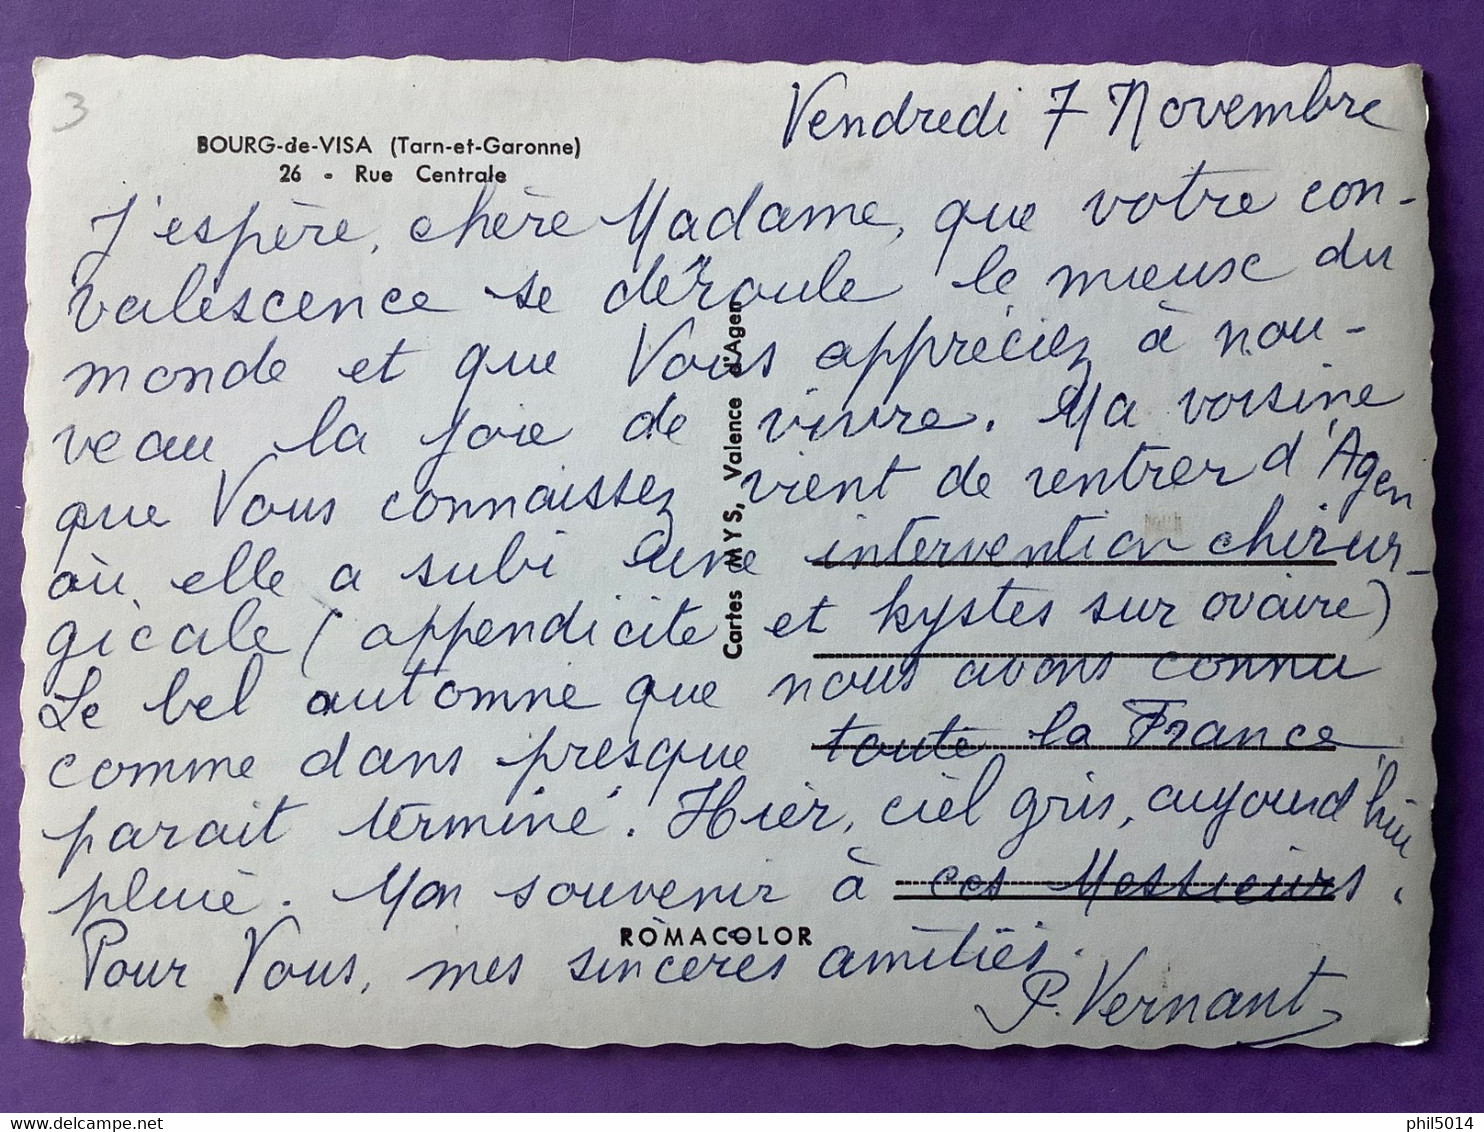 3
BOURG-de-VISA (Tarn-et-Garonne)
26 - Rue Centrale
Vendredi 7 Novembre
J'espère, chère Madame, que votre con-
valescence se déroule le mieux du
monde et que Vous appréciez à nou-
veau la joie de vivre. Ma voisine
que Vous connaissez vient de rentrer d'Agen
où elle a subi une intervention chirur-
gicale (appendicite et kystes sur ovaire)
Le bel automne que nous avons connu
comme dans presque toute la France,
parait terminé. Hier, ciel gris, aujourd'hui
pluie. Mon souvenir à ces Messieurs.
Pour Vous, mes sincères amitiés.
P. Vernant
Cartes MYS, Valence d'Agen
ROMACOLOR
phil5014